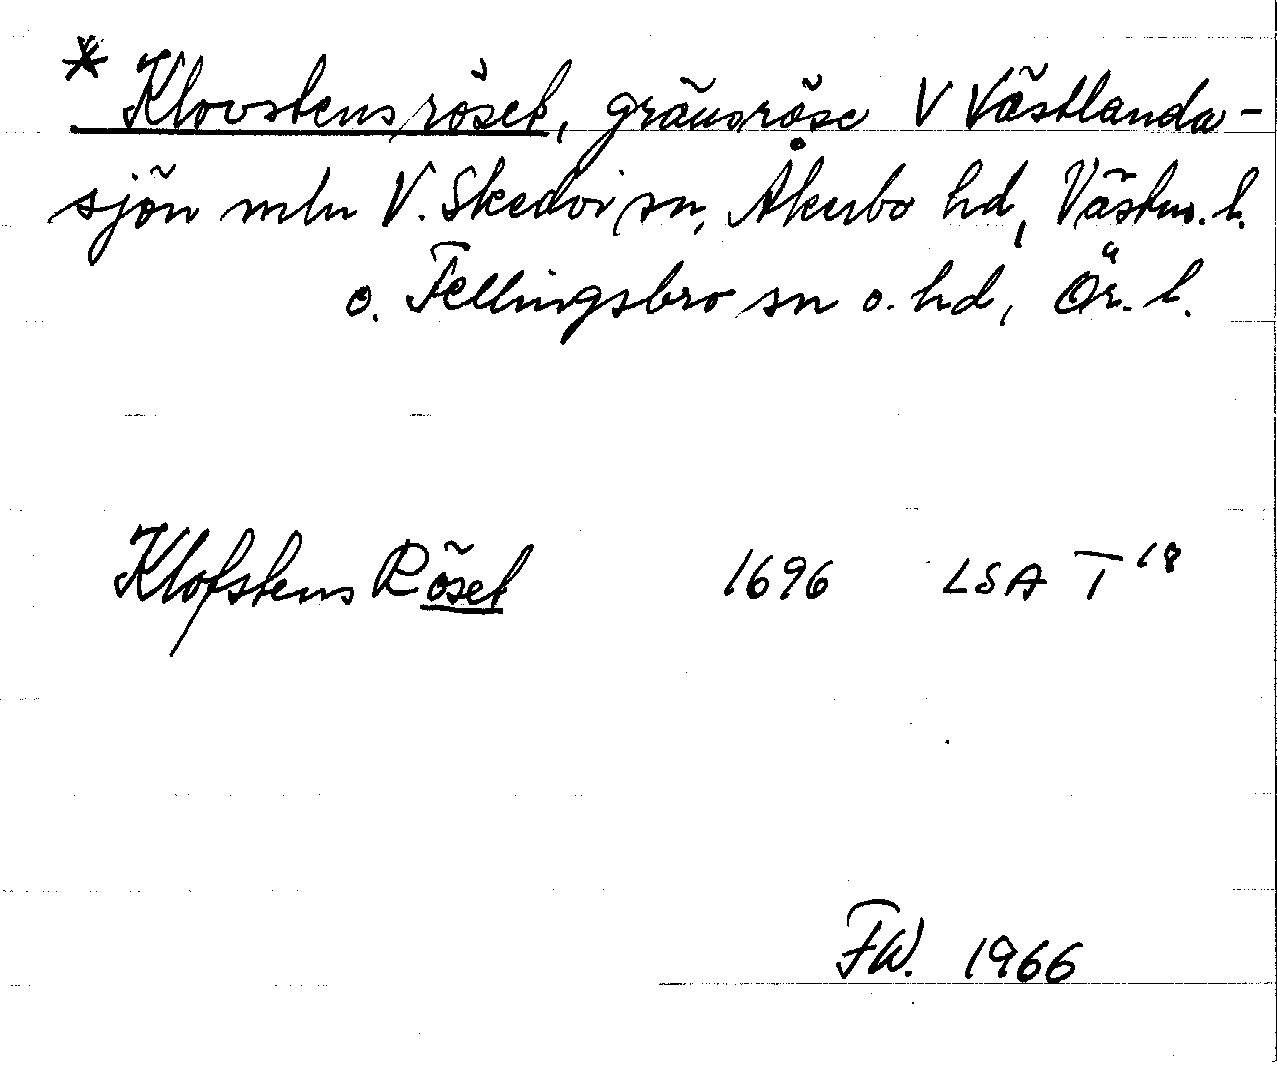 * Klovstensröset, gränsröse V Västlanda-
sjön mln V. Skedvi sn, Åkerbo hd, Västm. l.
o. Fellingsbro sn o. hd, Ör. l.
Klofstens Röset 1696 LSA T 18
FW. 1966